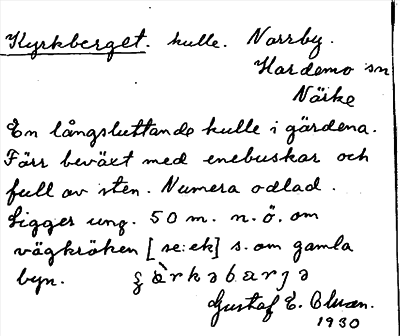 Kyrkberget. kulle. Norrby.
Hardemo sn
Närke
En långsluttande kulle i gärdena.
Förr beväxt med enebuskar och
full av sten. Numera odlad.
Ligger ung. 50 m. n. ö. om
vägkröken [se: ek] s. om gamla
byn.
Gustaf E.
1930